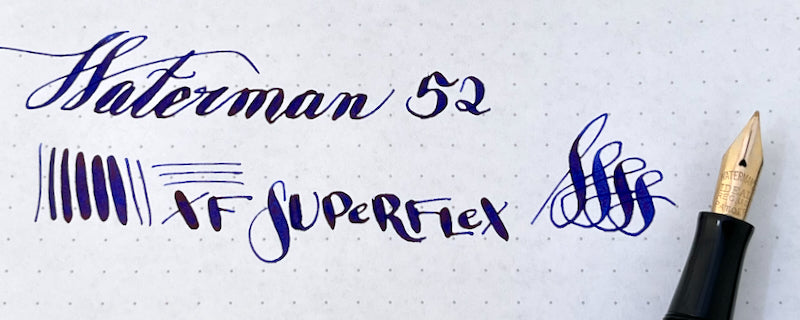 Waterman 52
XF SUPeRFLex
WATERMAN